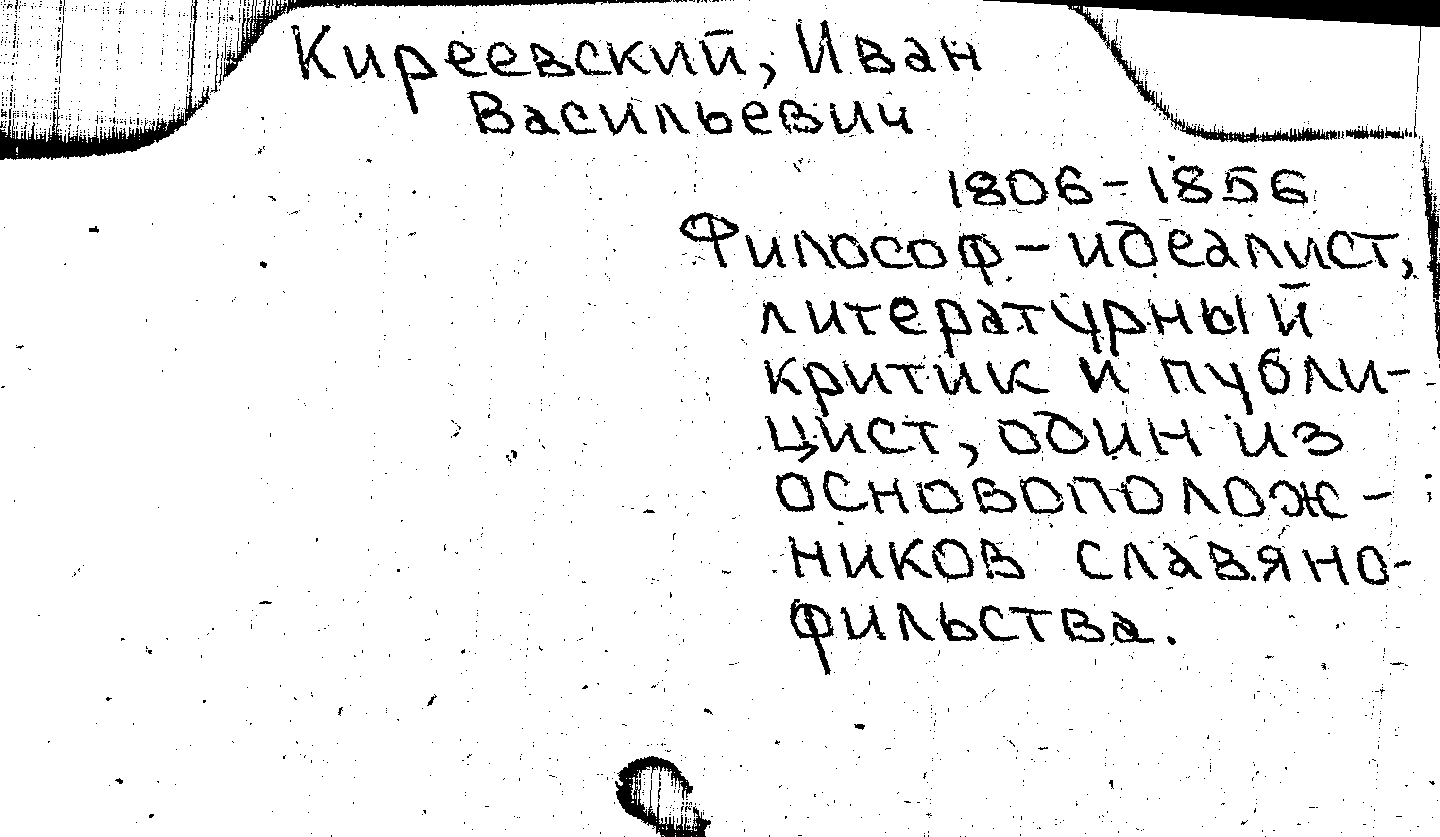 Киреевский, Иван
Васильевич
1806-1856
Философ-идеалист,
литературный
критик и публи-
цист, один из
основополож-
ников славяно-
фильства.